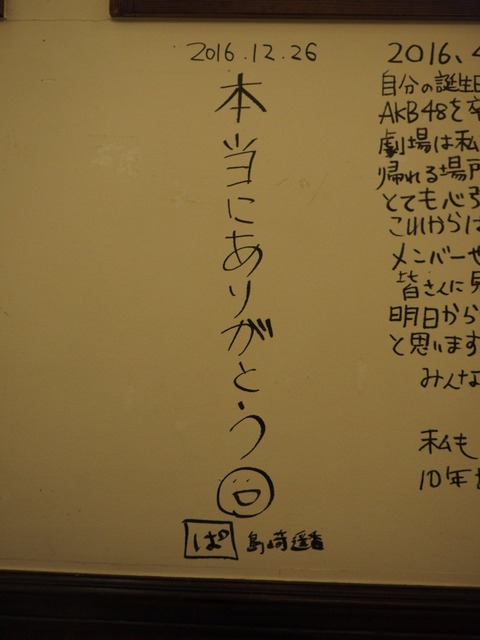 2016.12.26
本当にありがとう
ぱ 島崎遥香
2016、4
自分の誕生日
AKB48を卒
劇場は私
帰れる場所
とても心引
これからは
メンバーや
皆さんに見
明日から
と思います
みんな
私も
10年